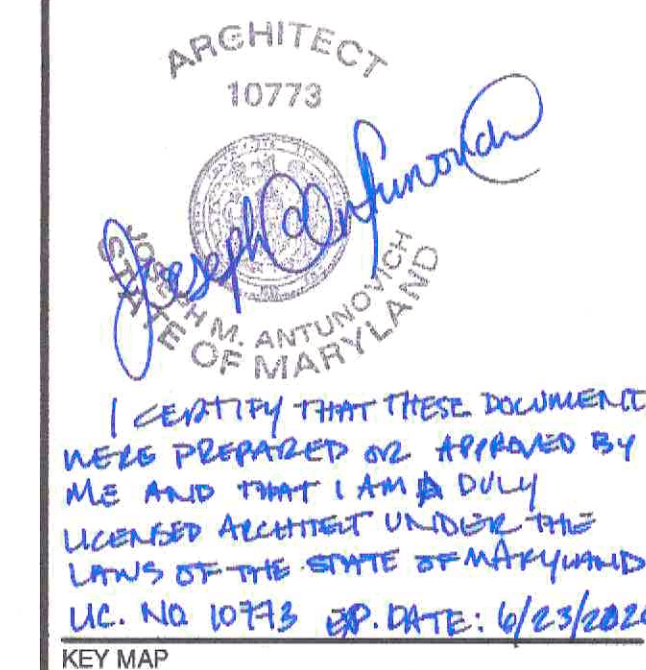 ARCHITECT
10773
Joseph M Antunovich
JOSEPH M. ANTUNOVICH
STATE OF MARYLAND
I CERTIFY THAT THESE DOCUMENT
WERE PREPARED OR APPROVED BY
ME AND THAT I AM A DULY
LICENSED ARCHITECT UNDER THE
LAWS OF THE STATE OF MARYLAND
LIC. NO. 10773 EXP. DATE: 6/23/202
KEY MAP